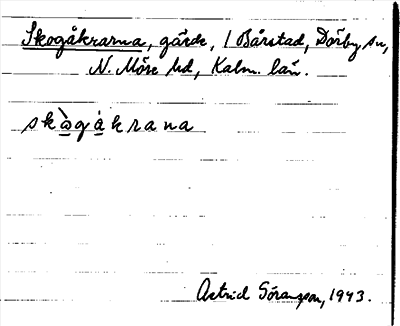 Skogåkrarna, gärde, 1 Bårstad, Dörby sn,
N. Möre hd, Kalm. län.
skò̲gȧ̲krana
Astrid Göransson, 1943.